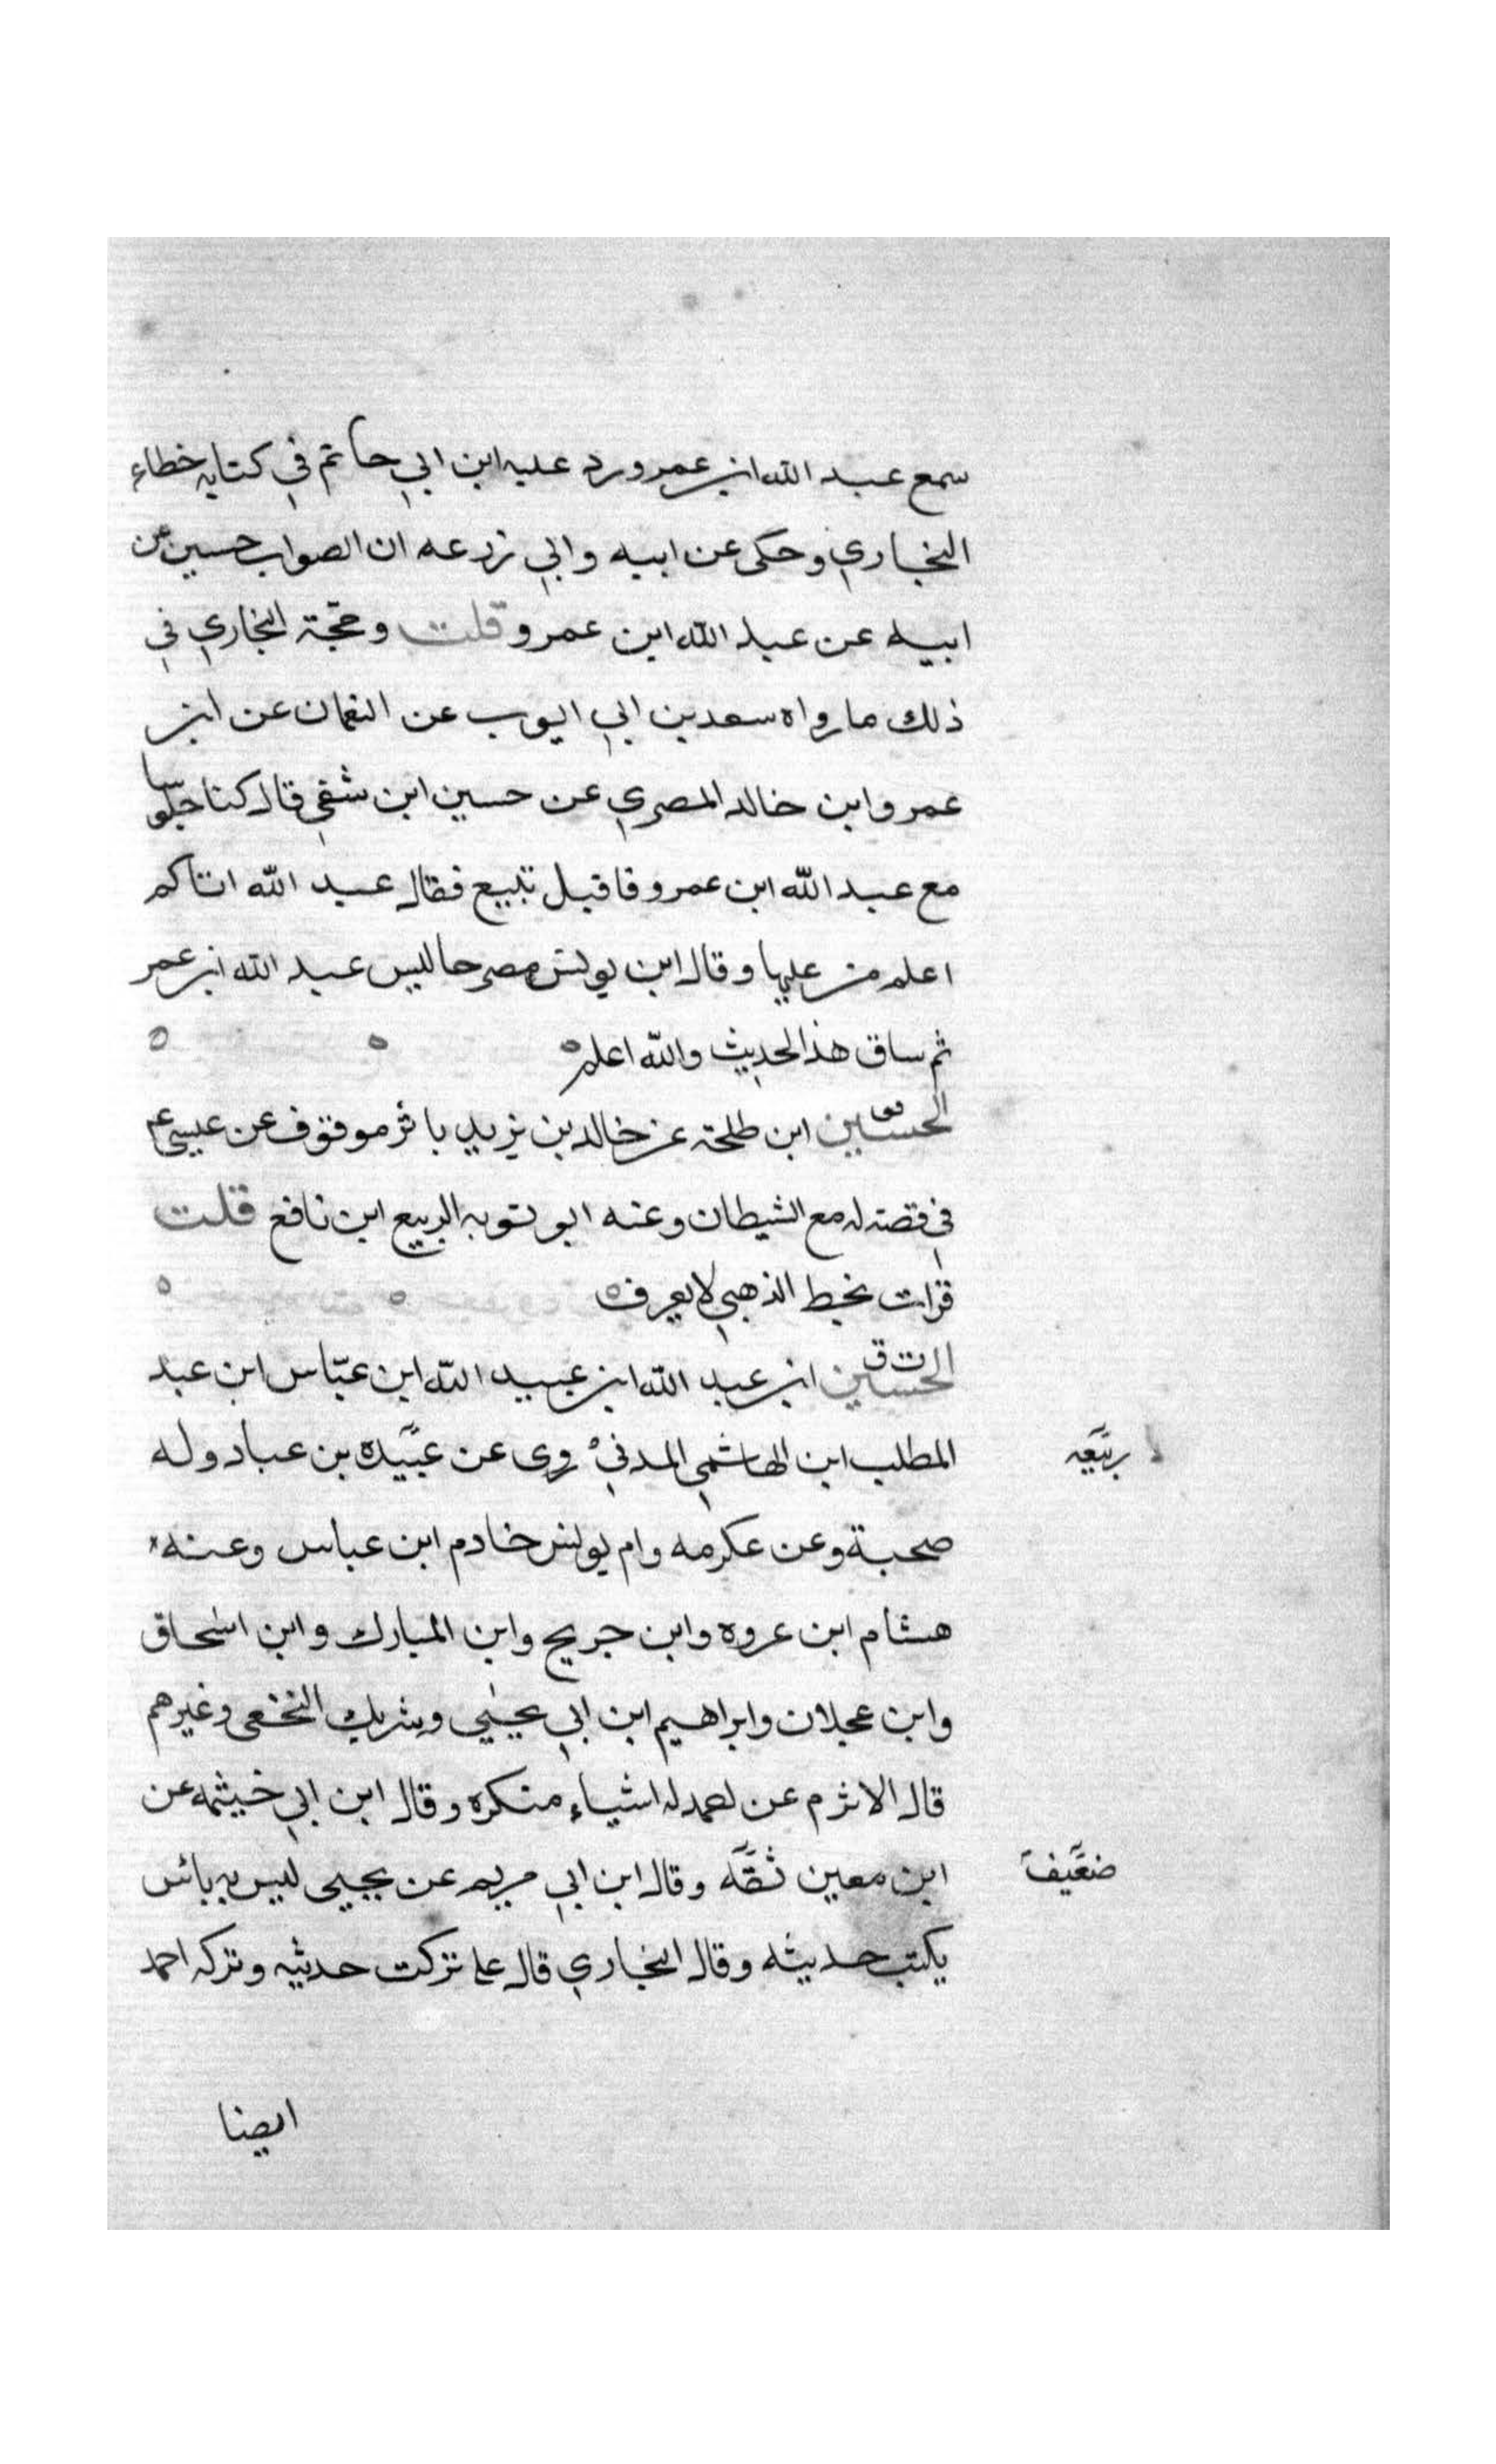 سمع عبد الله ابن عمر ورد عليه ابن ابي حاتم في كتابه خطاء
البخاري وحكى عن ابيه وابي زرعه ان الصواب حسين عن
ابيه عن عبد الله ابن عمرو قلت وحجة البخاري في
ذلك ما رواه سعد بن ابي ايوب عن النعمان عن ابن
عمرو ابن خالد المصري عن حسين ابن شفي قال كنا جلوسا
مع عبد الله ابن عمرو فاقبل تبيع فقال عبد الله اتاكم
اعلم من عليها وقال ابن يونس مصر جاليس عبد الله ابن عمر
ثم ساق هذا لحديث والله اعلم
الحسين ابن طلحة عن خالد بن يزيد باثر موقوف عن عيسى عم
في قصته له مع الشيطان وعنه ابو توبه الربيع ابن نافع قلت
قرات بخط الذهبي لا يعرف
ت ق
الحسين ابن عبد الله ابن عبيد الله ابن عباس ابن عبد
المطلب ابن الهاشمي المدني روى عن عبيده بن عباد وله
ربيعه
صحبة وعن عكرمه وام يونس خادم ابن عباس وعنه
هشام ابن عروه وابن جريج وابن المبارك وابن اسحاق
وابن عجلان وابراهيم ابن ابي يحيي وشريك النخعي وغيرهم
قال الاثرم عن احمد له اشياء منكره وقال ابن ابي خيثمه عن
ابن معين ثقه وقال ابن ابي مريم عن يحيى ليس به بائس
ضعيف
يكتب حديثه وقال البخاري قال علي تركت حديثه وتركه احمد
ايضا